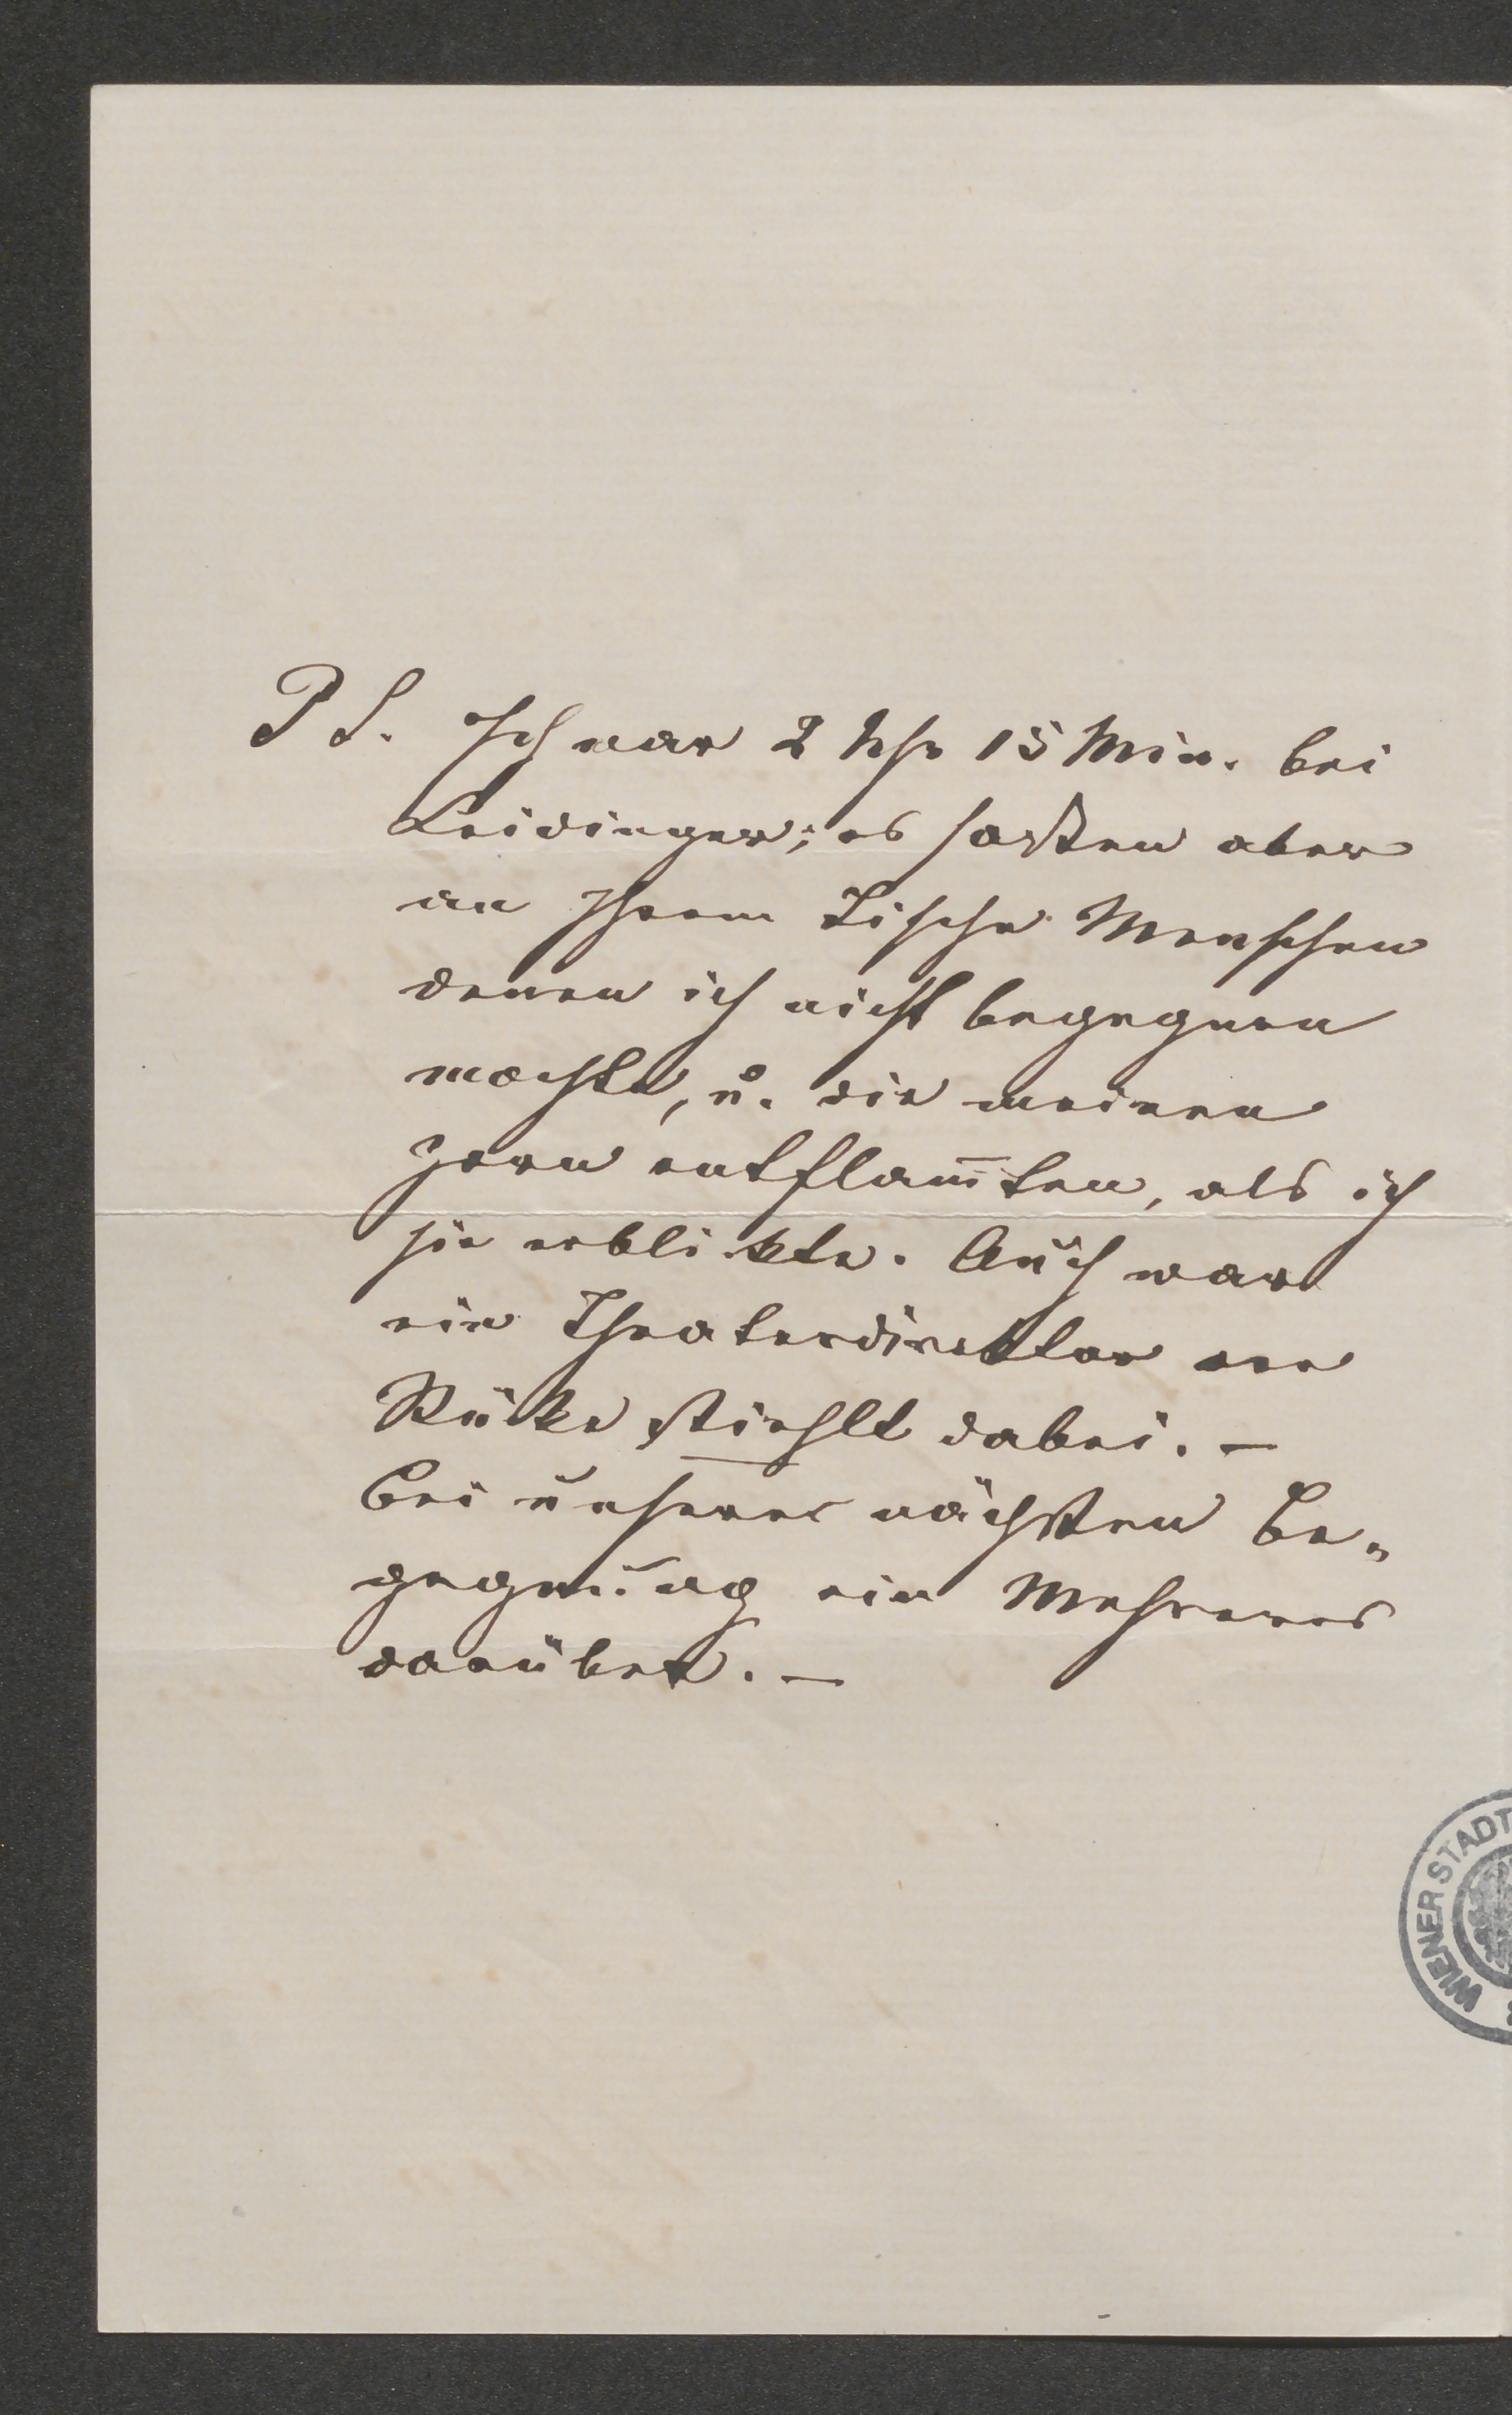 P S. Ich war 2 Uhr 15 Min. bei
Leidinger; es saßen aber
an Ihrem Tische Menschen
denen ich nicht begegnen
mochte, u. die meinen
Zorn entflam̅ten, als ich
sie erblikte. Auch war
ein Theaterdirektor der
Stüke stiehlt dabei. –
Bei unserer nächsten Be-
gegnung ein Mehreres
darüber. –
WIENER STADT